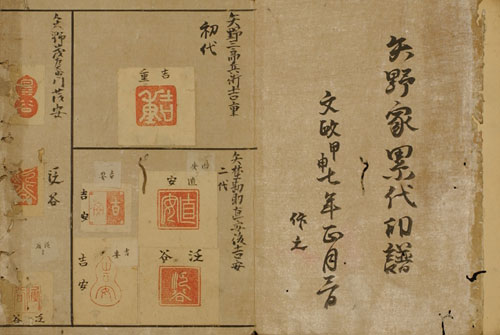 矢野家累代印譜
文政甲申七年正月
矢野三郎兵衛吉重
初代
吉重
吉重
矢野勘助直安後吉安
二代
直安
直安
汪谷
吉安
吉安
矢野茂左衛門茂安
汪谷